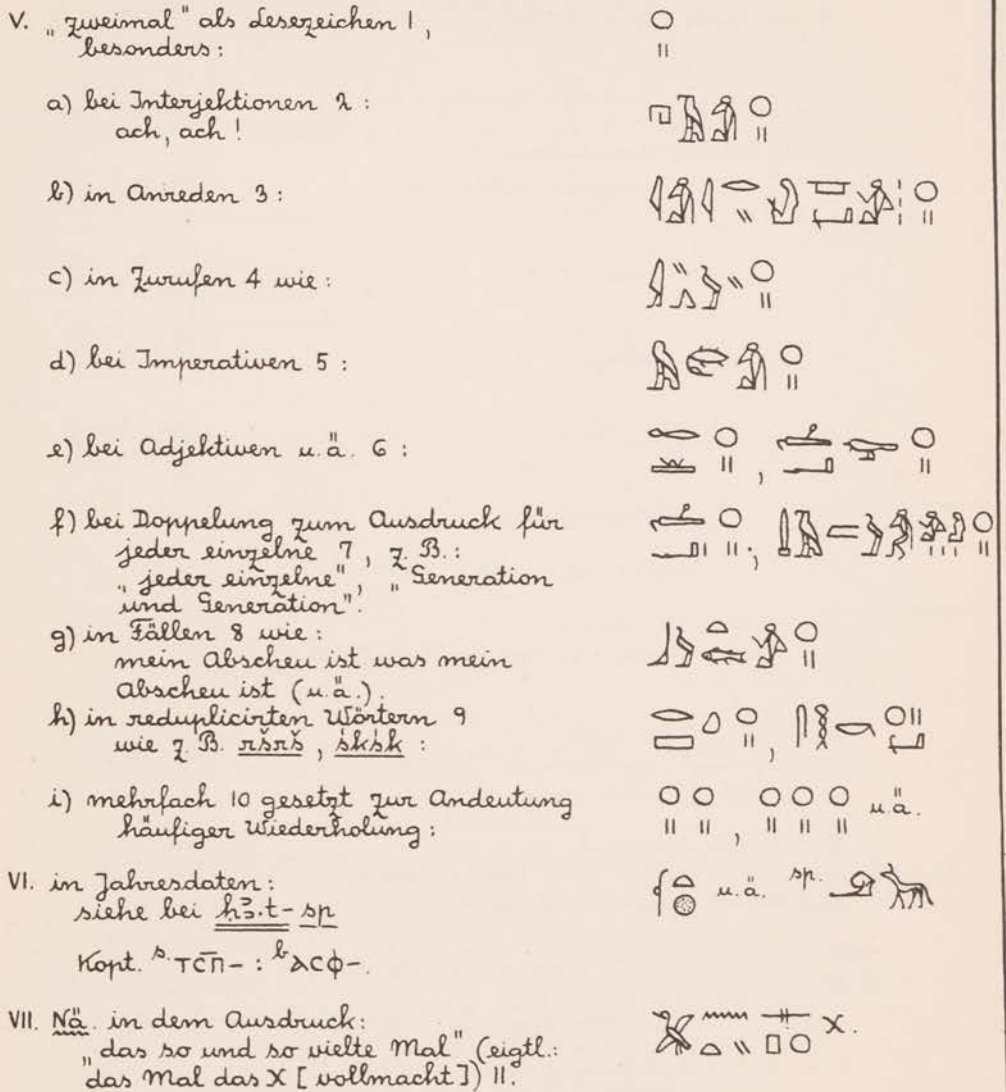 V. „zweimal" als Lesezeichen 1,
besonders:
a) bei Interjektionen 2:
ach, ach!
b) in Anreden 3:
c) in Zurufen 4 wie:
d) bei Imperativen 5:
e) bei Adjektiven u. ä. 6:
f) bei Doppelung zum Ausdruck für
jeder einzelne 7, z. B.:
„jeder einzelne", „Generation
und Generation".
g) in Fällen 8 wie:
mein Abscheu ist was mein
Abscheu ist (u. ä.).
h) in reduplicirten Wörtern 9
wie z. B. ršrš, śkśk:
i) mehrfach 10 gesetzt zur Andeutung
häufiger Wiederholung: u. ä.
VI. in Jahresdaten: u. ä. sp.
siehe bei ḥꜣ.t-sp
Kopt. s. ⲧⲥⲡ̅- : b ⲁⲥⲫ-.
VII. Nä. in dem Ausdruck: X.
„das so und so vielte Mal" (eigtl.:
das Mal das X [vollmacht]) 11.